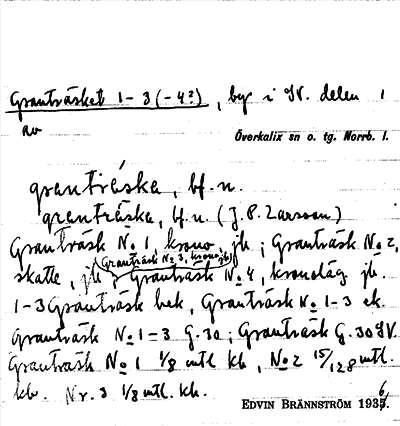 Granträsket 1-3 (-4?), by i SV. delen
av
Överkalix sn o. tg. Norrb. l.
granträska, bf. n.
granträska, bf. n. (J. P. Larsson)
Granträsk No 1, krono, jb; Granträsk No 2,
(Granträsk No 3, krono jb)
skatte, jb; Granträsk No 4, kronoläg. jb.
1-3 Granträsk hek, Granträsk No 1-3 ek.
Granträsk No 1-3 G. 30; Granträsk G. 30 SV.
Granträsk No 1 1/8 mtl kb, No 2 15/128 mtl.
kb. Nr. 3 1/8 mtl. kb.
EDVIN BRÄNNSTRÖM 1936.